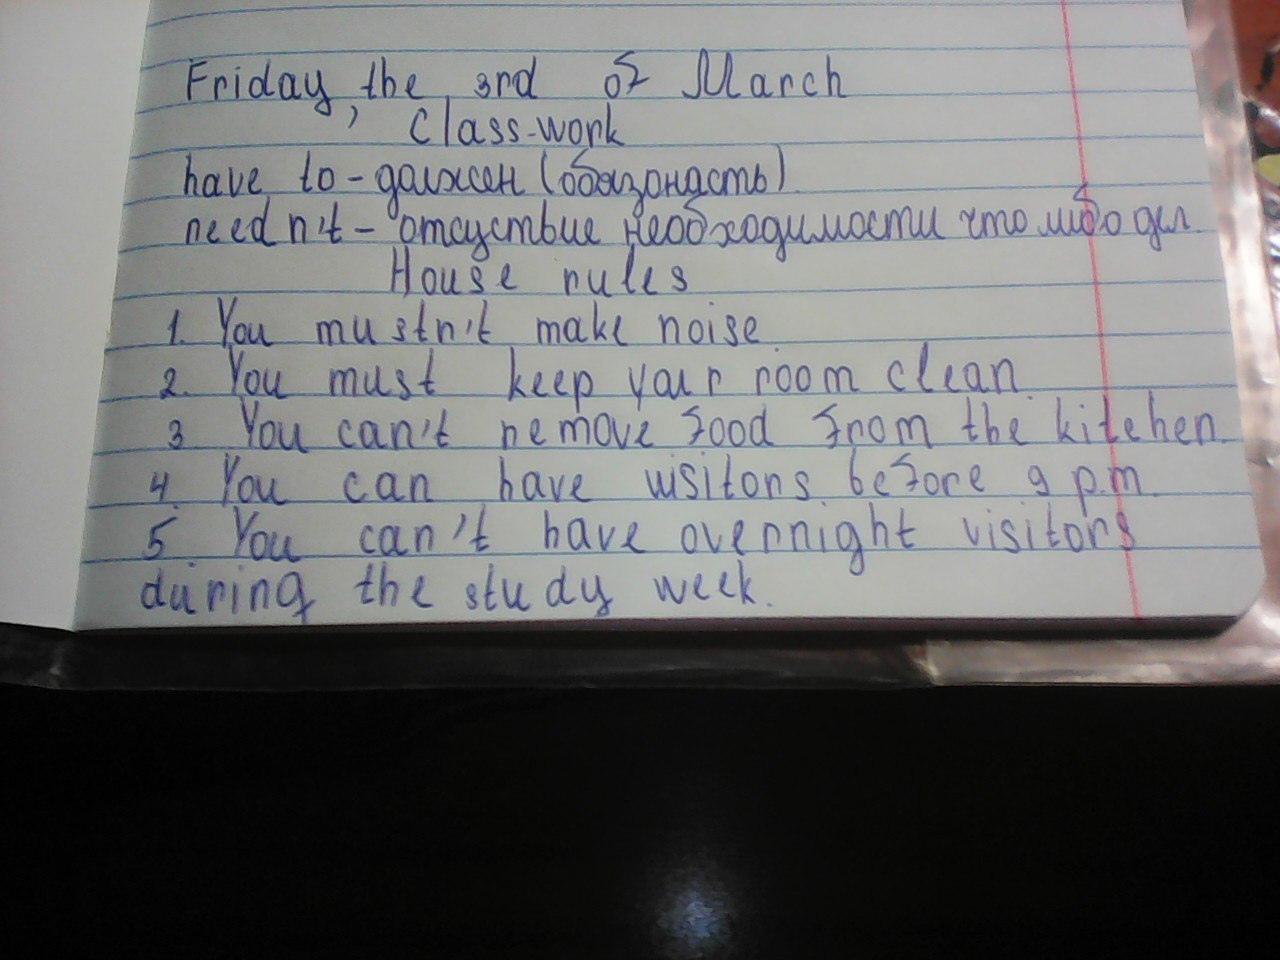 Friday, the 3rd of March
Class-work
have to - должен (обязонасть)
needn't - отсуствие необходимости что либо дел.
House rules
1. You mustn't make noise.
2. You must keep your room clean.
3 You can't remove food from the kitchen.
4 You can have visitors before 9 p.m.
5 You can't have overnight visitors
during the study week.